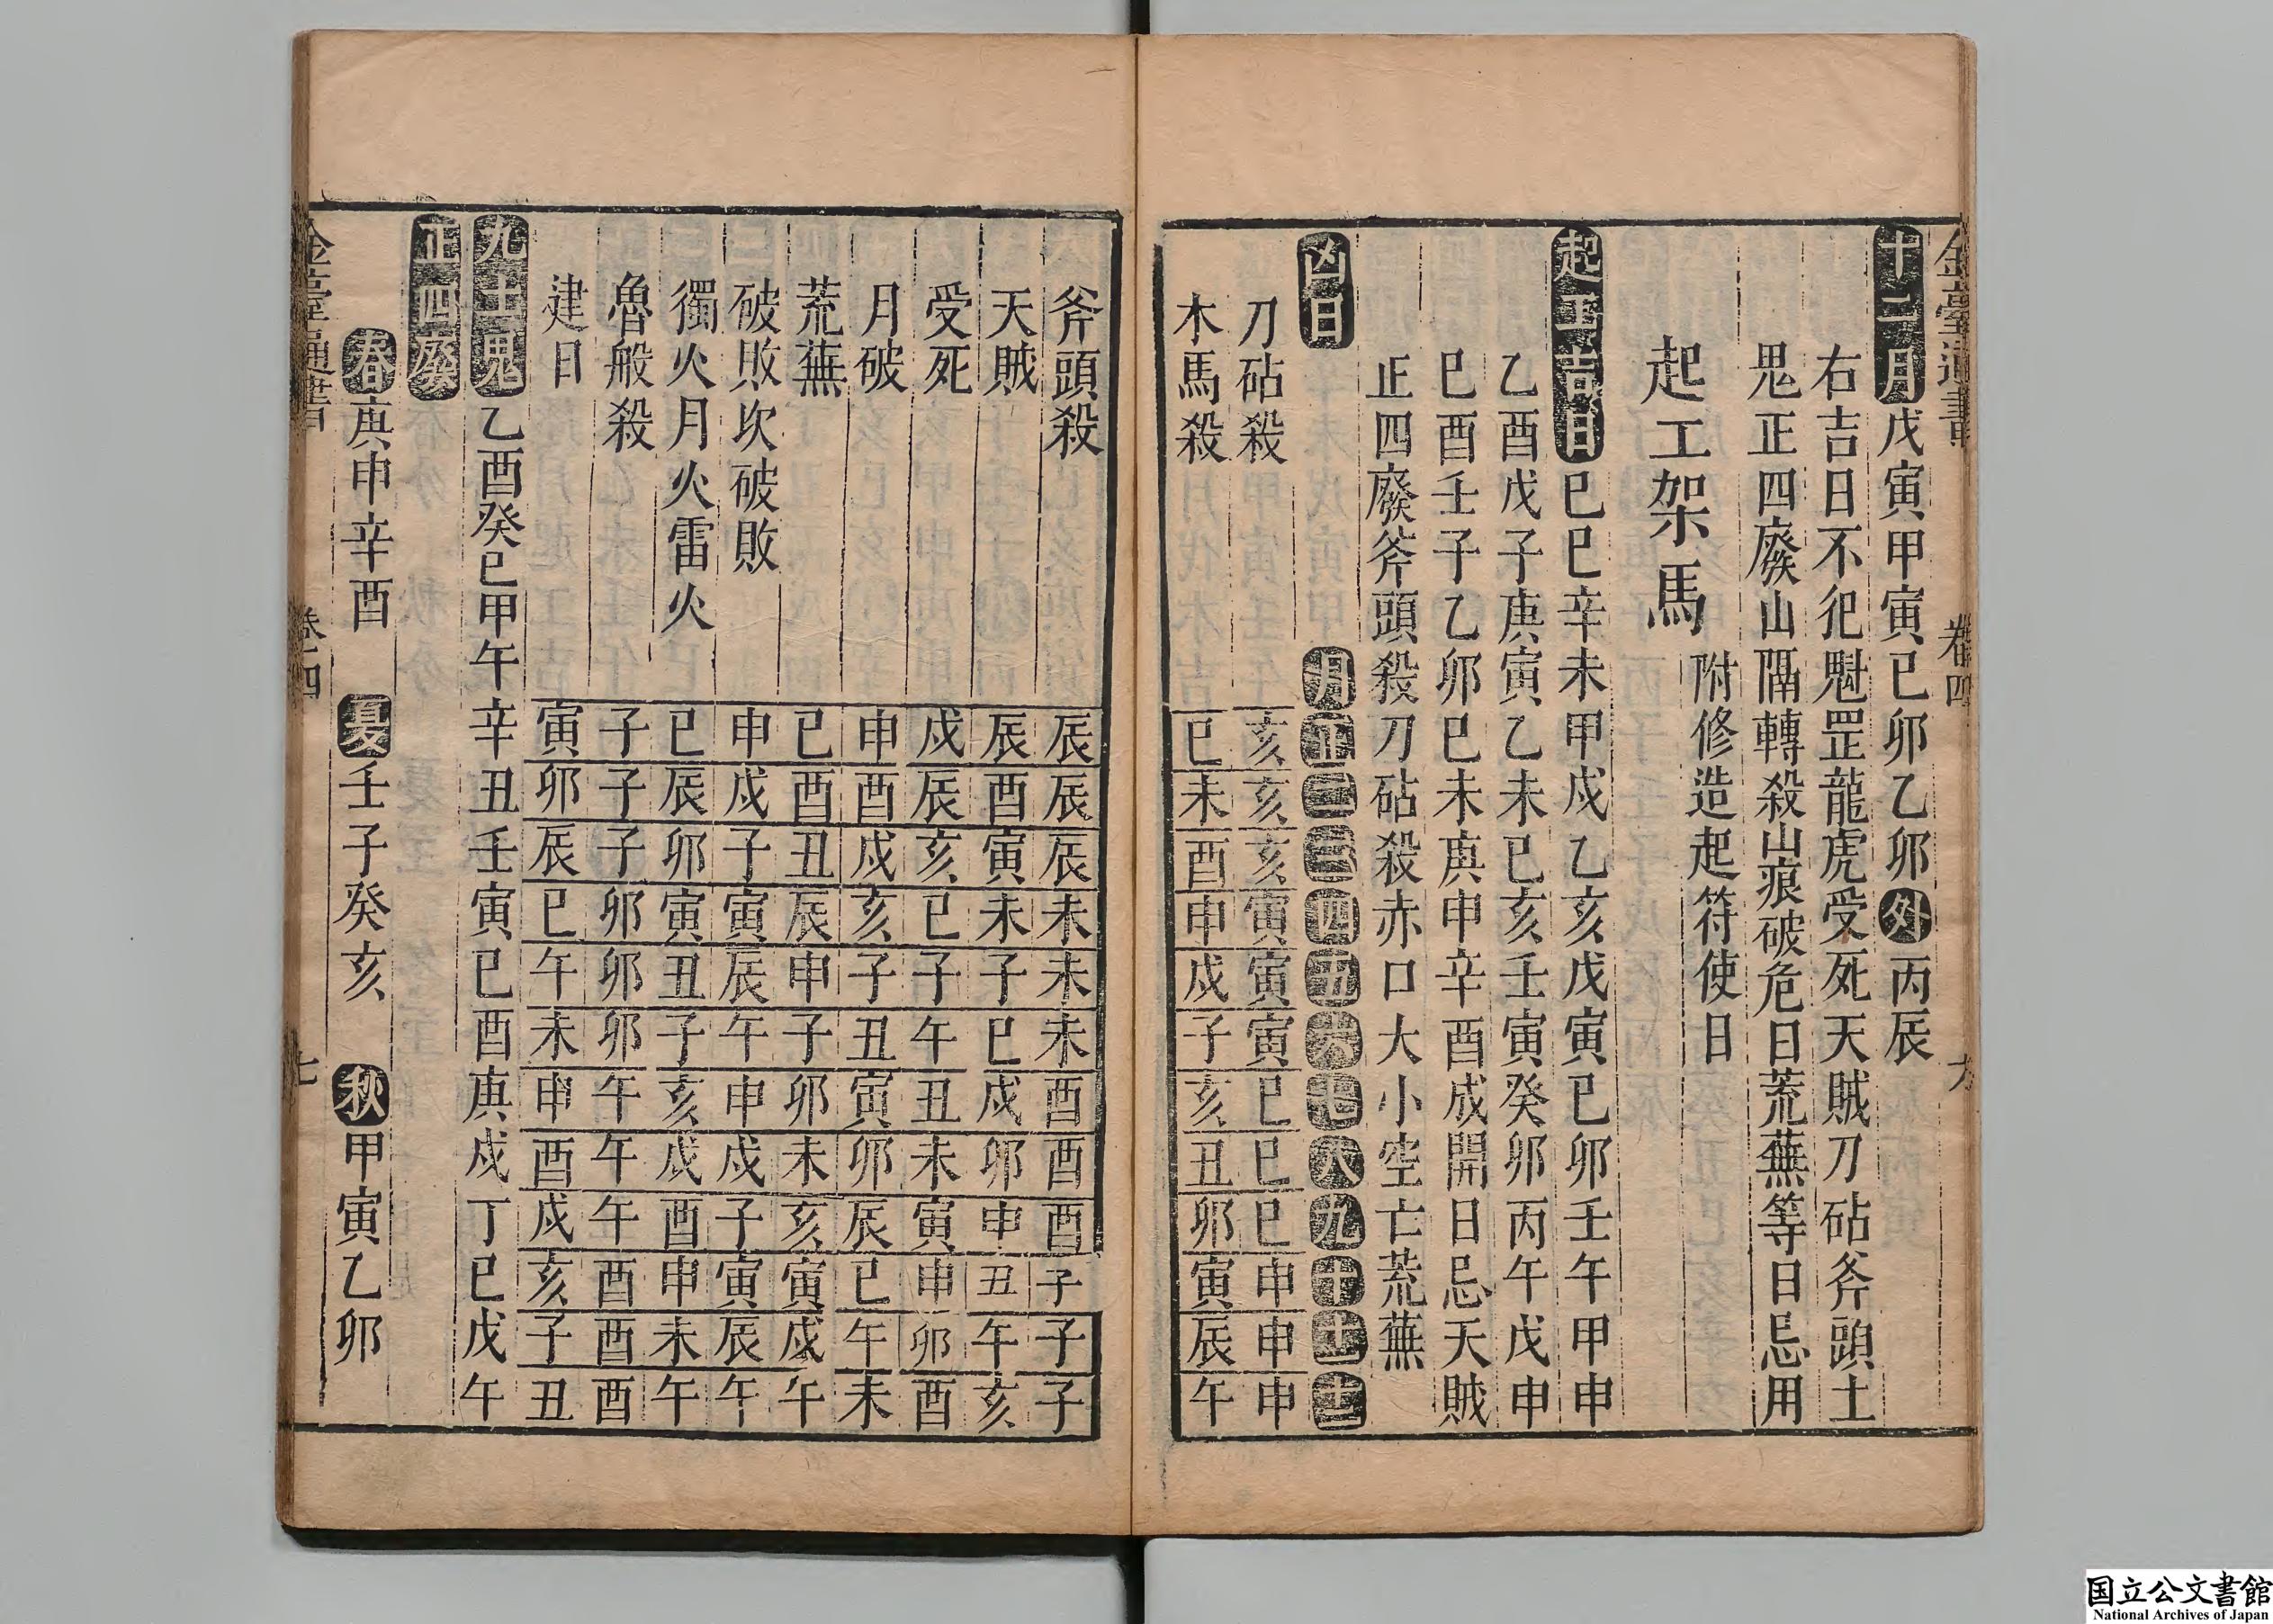 十二月戊寅甲寅已卯乙卯外丙辰
右吉日不犯魁罡龍虎受死天賊刀砧斧頭土
鬼正四廢山隔轉殺山痕破危日荒蕪等日忌用
起工架馬 附修造起符使日
起工吉日已巳辛未甲戌乙亥戊寅已卯壬午甲申
乙酉戊子庚寅乙未已亥壬寅癸卯丙午戊申
巳酉壬子乙卯巳未庚申辛酉成開日忌天賊
正四廢斧頭殺刀砧殺赤口大小空亡荒蕪
凶日 月正二三四五六七八九十十一十二
刀砧殺 亥亥亥寅寅寅巳巳巳申申申
木馬殺 巳未酉申戌子亥丑卯寅辰午
斧頭殺 辰辰辰未未未酉酉酉子子子
天賊 辰酉寅未子巳戌卯申丑午亥
受死 戌辰亥巳子午丑未寅申卯酉
月破 申酉戌亥子丑寅卯辰巳午未
荒蕪 巳酉丑辰申子卯未亥寅戌午
破敗坎破敗 申戌子寅辰午申戌子寅辰午
獨火月火雷火 巳辰卯寅丑子亥戌酉申未午
魯般殺 子子子卯卯卯午午午酉酉酉
建日 寅卯辰巳午未申酉戌亥子丑
九土鬼乙酉癸巳甲午辛丑壬寅巳酉庚戌丁巳戊午
正四廢
春庚申辛酉 夏壬子癸亥 秋甲寅乙卯
卷四
七
卷四
六
国立公文書館
National Archives of Japan